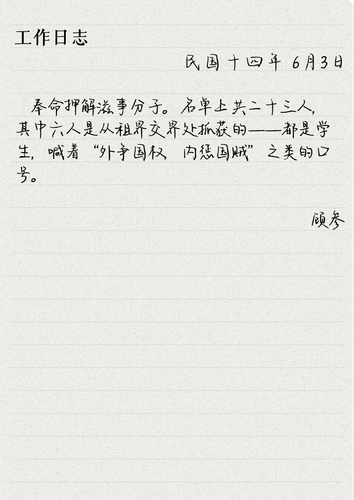 工作日志
民国十四年 6月3日
奉命押解滋事分子。名单上共二十三人，
其中六人是从租界交界处抓获的——都是学
生，喊着“外争国权，内惩国贼”之类的口
号。
顾参